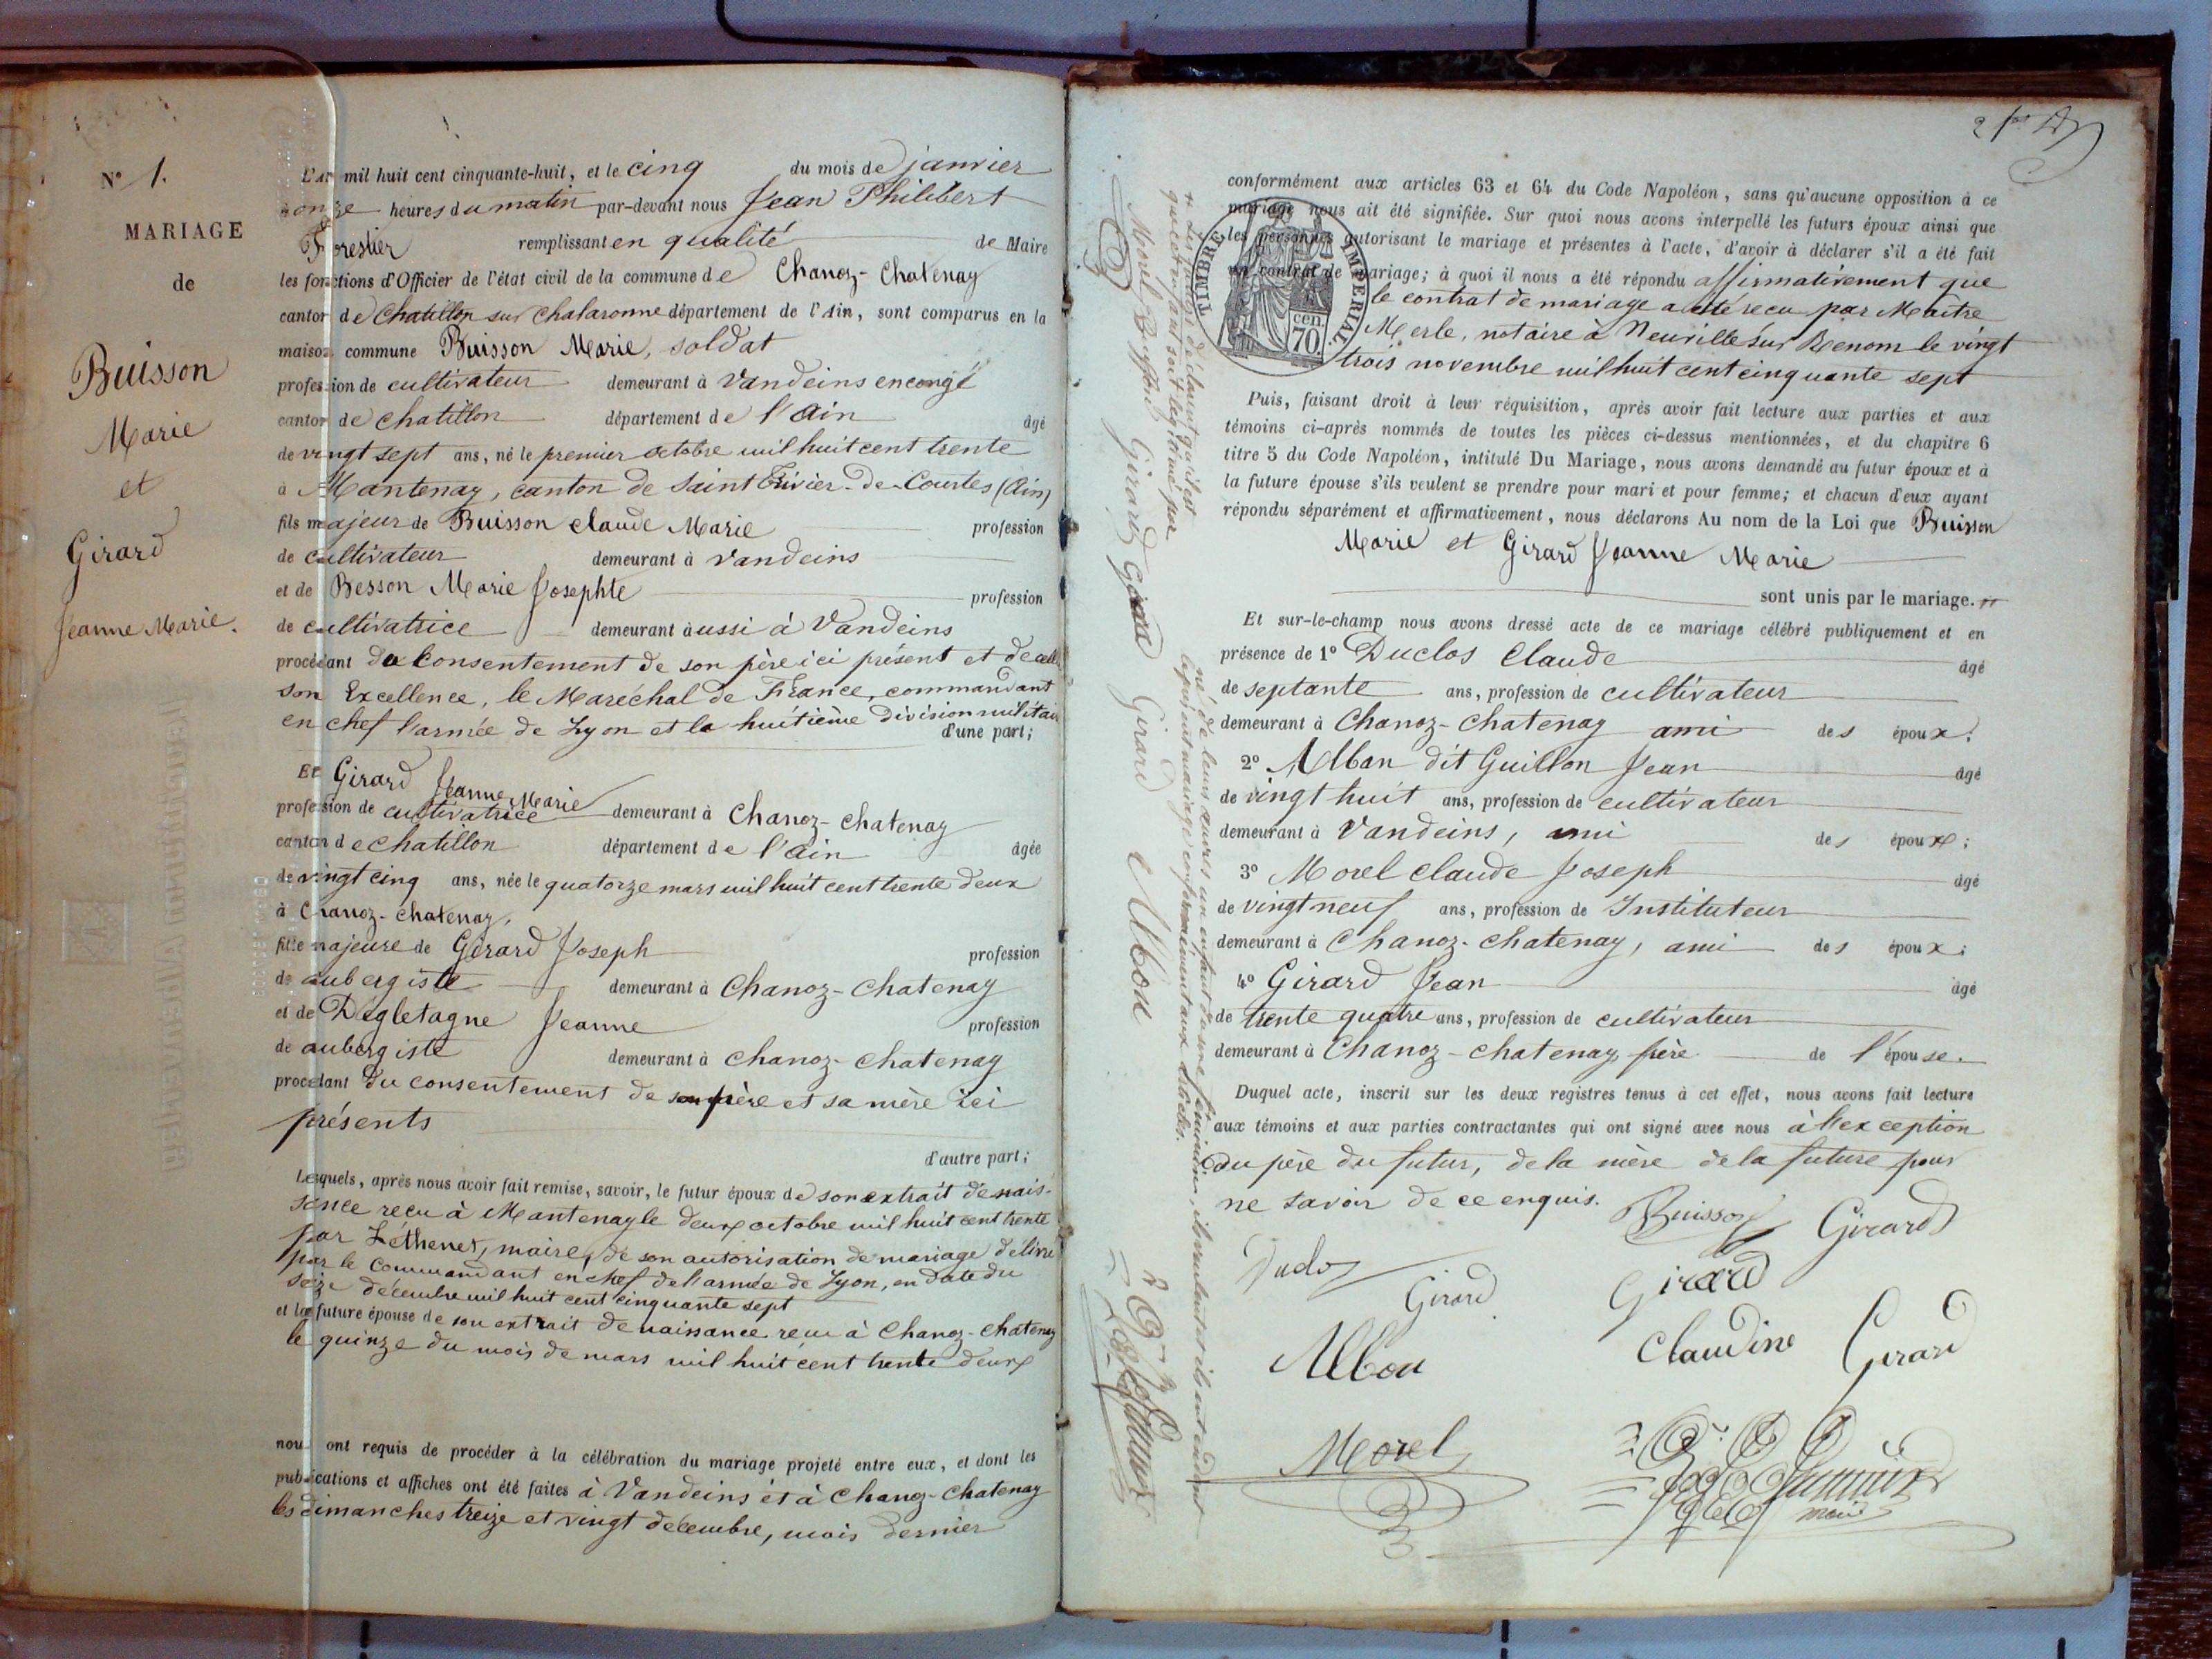 N° 1.
MARIAGE
de
Buisson
Marie
et
Girard
Jeanne Marie.
L'an mil huit cent cinquante-huit, et le cinq du mois de janvier
onze heures du matin par-devant nous Jean Philibert
Forestier remplissant en qualité de Maire
les fonctions d'Officier de l'état civil de la commune de Chanoz-Chatenay
canton de Chatillon sur Chalaronne département de l'Ain, sont comparus en la
maison commune Buisson Marie, soldat
profession de cultivateur demeurant à Vandeins en congé
canton de Chatillon département de l'Ain âgé
de vingt sept ans, né le premier octobre mil huit cent trente
à Mantenay, canton de Saint Trivier-de-Courtes (Ain)
fils majeur de Buisson Claude Marie profession
de cultivateur demeurant à Vandeins
et de Besson Marie Josephte profession
de cultivatrice demeurant aussi à Vandeins
procédant du consentement de son père ici présent et de
son Excellence, le Maréchal de France, commandant
en chef l'armée de Lyon et la huitième division militaire
d'une part;
Et Girard Jeanne Marie
profession de cultivatrice demeurant à Chanoz-Chatenay
canton de Chatillon département de l'Ain âgée
de vingt cinq ans, née le quatorze mars mil huit cent trente deux
à Chanoz-Chatenay,
fille majeure de Girard Joseph profession
de aubergiste demeurant à Chanoz-Chatenay
et de Dégletagne Jeanne profession
de aubergiste demeurant à Chanoz-Chatenay
procédant du consentement de son père et sa mère ici
présents
d'autre part;
Lesquels, après nous avoir fait remise, savoir, le futur époux de son extrait de nais-
sance reçu à Mantenay le deux octobre mil huit cent trente
par Léthenet, maire, de son autorisation de mariage délivré
par le commandant en chef de l'armée de Lyon, en date du
seize décembre mil huit cent cinquante sept
et la future épouse de son extrait de naissance reçu à Chanoz-Chatenay
le quinze du mois de mars mil huit cent trente deux
nous ont requis de procéder à la célébration du mariage projeté entre eux, et dont les
publications et affiches ont été faites à Vandeins et à Chanoz-Chatenay
les dimanches treize et vingt décembre, mois dernier
conformément aux articles 63 et 64 du Code Napoléon, sans qu'aucune opposition à ce
mariage nous ait été signifiée. Sur quoi nous avons interpellé les futurs époux ainsi que
les personnes autorisant le mariage et présentes à l'acte, d'avoir à déclarer s'il a été fait
un contrat de mariage; à quoi il nous a été répondu affirmativement que
le contrat de mariage a été reçu par Maître
Merle, notaire à Neuville sur Renom le vingt
trois novembre mil huit cent cinquante sept
TIMBRE IMPERIAL
70 cen.
Puis, faisant droit à leur réquisition, après avoir fait lecture aux parties et aux
témoins ci-après nommés de toutes les pièces ci-dessus mentionnées, et du chapitre 6
titre 5 du Code Napoléon, intitulé Du Mariage, nous avons demandé au futur époux et à
la future épouse s'ils veulent se prendre pour mari et pour femme; et chacun d'eux ayant
répondu séparément et affirmativement, nous déclarons Au nom de la Loi que Buisson
Marie et Girard Jeanne Marie
sont unis par le mariage.
Et sur-le-champ nous avons dressé acte de ce mariage célébré publiquement et en
présence de 1° Duclos Claude âgé
de septante ans, profession de cultivateur
demeurant à Chanoz-Chatenay ami des époux.
2° Alban dit Guillon Jean âgé
de vingt huit ans, profession de cultivateur
demeurant à Vandeins, ami des époux;
3° Morel Claude Joseph âgé
de vingt neuf ans, profession de Instituteur
demeurant à Chanoz-Chatenay, ami des époux;
4° Girard Jean âgé
de trente quatre ans, profession de cultivateur
demeurant à Chanoz-Chatenay, frère de l'épouse.
Duquel acte, inscrit sur les deux registres tenus à cet effet, nous avons fait lecture
aux témoins et aux parties contractantes qui ont signé avec nous à l'exception
du père du futur, de la mère de la future pour
ne savoir de ce enquis. Buisson Girard
Duclos Girard Girard
Albon Claudine Girard
Morel
maire
né de leurs œuvres un enfant du sexe féminin
Morel Buisson Girard Girard Girard Albon